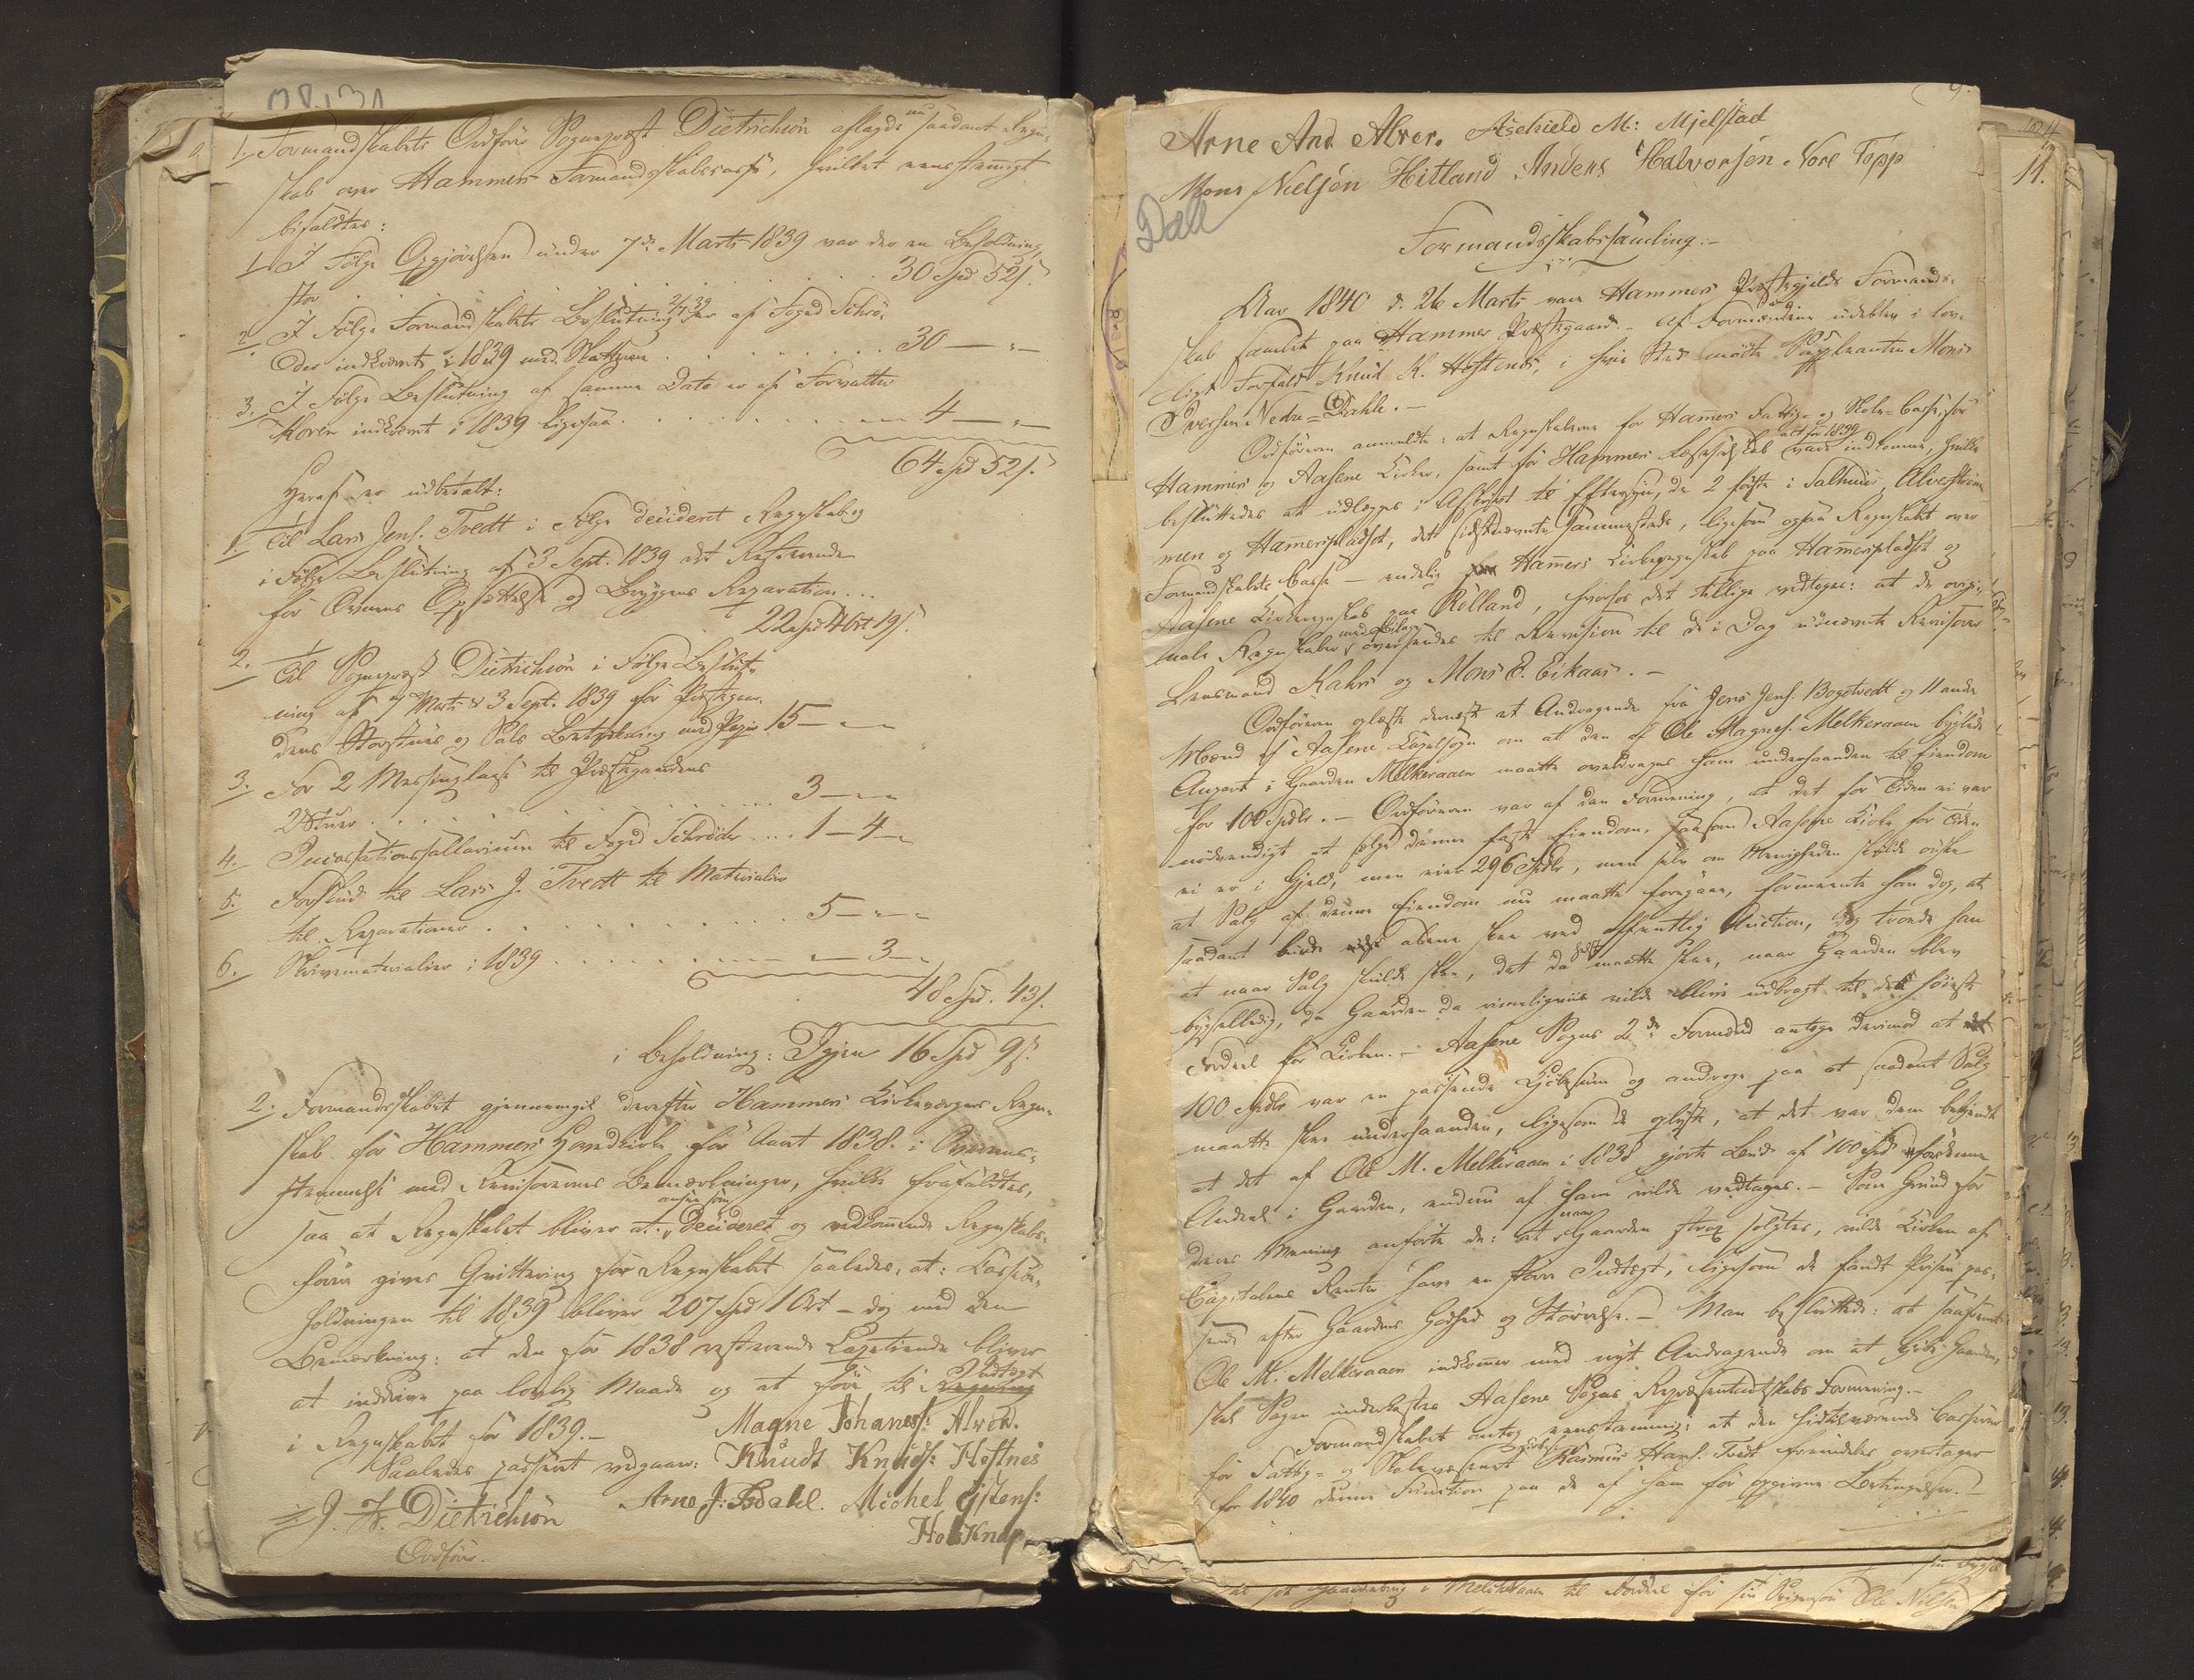 1. Formandskabets Ordfører Sogneprest Dietrichson aflagde nu saadant Regn-
skab over Hammers Formandskabscasse, hvilket eenstemmigt
bifaldtes:
1. I Følge Opgjørelsen under 7de Marts 1839 var der en Beholdning
stor . . . 30 Spd 52 s.
2. I Følge Formandskabets Beslutning 2/7 39 er af Foged Schrø-
der indkrævet i 1839 med Skatterne . . . 30 — " —
3. I Følge Beslutning af samme Dato er af Forvalter
Koren indkrævet i 1839 ligesaa . . . 4 — " —
64 Spd 52 s.
Heraf er udbetalt:
1. Til Lars Jens. Tvedt i Følge decideret Regnskab og
i Følge Beslutning af 3 Sept. 1839 det Resterende
for Ovnens Opsættelse og Bryggens Reparation . . .
22 Spd 4 Ort 19 s.
2. Til Sogneprest Dietrichson i Følge Beslut-
ning af 7 Marts & 3 Sept. 1839 for Præstegaar-
dens Storstues og Sals Betrækning med Papir 15 — " —
3. For 2 Messinglaase til Præstegaardens
2 Stuer . . . 3 — " —
4. Incassationssallarium til Foged Schrøder . . . 1 — 4 — "
5. Forskud til Lars J. Tvedt til Materialier
til Reparationer . . . 5 — " — "
6. Skrivematerialier i 1839 . . . — 3 — "
48 Spd. 43 s.
i Beholdning: Igjen 16 Spd 9 s.
2. Formandsskabet gjennemgik derefter Hammers Kirkeværgers Regn-
skab for Hammers Hovedkirke for Aaret 1838. i Overeens-
stemmelse med Revisorernes Bemærkninger, hvilke frafaldtes,
saa at Regnskabet bliver at ansee som Decideret og vedkommende Regnskabs-
fører gives Qvittering for Regnskabet saaledes, at: Cassebe-
holdningen til 1839 bliver 207 Spd 1 Ort - dog med den
Bemærkning: at den for 1838 resterende Korntiende bliver
at inddrive paa lovlig Maade og at føre til Indtægt
i Regnskabet for 1839. -
Saaledes passeret vedgaaer: Magne Johaness: Alvær.
Knudt Knuds: Hestnes
J. F. Dietrichson Arne J: Isdahl. Michel Eistens:
Ordfører. Holsknap
Arne And. Alver. Aschield M: Mjelstad
Mons Nielsen Hitland Anders Halvorsen Nore Topp
Dall
Formandsskabssamling. -
Aar 1840 d. 26 Marts var Hammers Præstegjelds Formand-
skab samlet paa Hammer Præstegaard. - Af Formændene udeblev i lov-
ligt Forfald Knud K. Hestenes, i hvis Sted mødte Suppleanten Mons
Iversen Nedre-Dahle. -
Ordføreren anmeldte: at Regnskaberne for Hammers Fattig- og Skole-Casse, for
Hammers og Aasene Kirker, samt for Hammers Læseselskab alt for 1839 vare indkomne, hvilke
besluttedes at udlægges i Afskrivt til Eftersyn, de 2 første i Salhuus, Alverstrøm-
men og Hammerspladset, det sidstnævnte sammesteds, ligesom ogsaa Regnskabet over
Formandskabets Casse - endelig Hammers Kirkeregnskab paa Hammerspladset og
Aasene Kirkeregnskab paa Risland, hvorhos det tillige vedtoges: at de origi-
nale Regnskaber med Bilage oversendes til Revision til de i Dag udnævnte Revisorer
Lensmand Kahrs og Mons E. Eikaas. -
Ordføreren oplæste dernæst et Andragende fra Jens Jens. Bogetvedt og 11 andre
Mænd af Aasene Capelsogn om at den af Ole Magnes. Melkeraaen byxlede
Anpart i Gaarden Melkeraaen maatte overdrages ham underhaanden til Eiendom
for 100 Spdlr. - Ordføreren var af den Formening, at det for Tiden ei var
nødvendigt at sælge denne faste Eiendom, saasom Aasene Kirke for Tiden
ei er i Gjeld, men eier 296 Spdlr, men selv om Menigheden skulde ønske
at Salg af denne Eiendom nu maatte foregaae, formeente han dog, at
saadant burde alene skee ved offentlig Auction, dog troede han
at naar Salg skulde skee, det da først maatte skee, naar Gaarden blev
bygselledig, da Gaarden da rimeligviis vilde blive udbragt til det høieste
Fordeel for Kirken. - Aasene Sogns 2de Formænd antoge derimod at
100 Spdlr var en passende Kjøbesum og androge paa at saadant Salg
maatte skee underhaanden, ligesom de oplyste, at det var dem bekjendt
at det af Ole M. Melkeraaen i 1838 gjorte Bud af 100 Spd for denne
Andeel i Gaarden, endnu af ham vilde vedtages. - Som Grund for
deres Mening anførte de: at naar Gaarden strax solgtes, vilde Kirken af
Capitalens Renter have en større Indtægt, ligesom de fandt Prisen pas-
sende efter Gaardens Godhed og Størrelse. - Man besluttede: at saafremt
Ole M. Melkeraaen indkommer med nyt Andragende om at kjøbe Gaarden,
skal Sagen underkastes Aasene Sogns Repræsentantskabs Formening. -
Formandskabet antog eenstemmig: at den hidtilværende Casserer
for Fattig- og Skolevæsenet Rasmus Hans. Tvedt fremdeles overtager
for 1840 denne Function paa de af ham før opgivne Betingelser. -
Gaardebrug i Melkeraaen til Fordeel for sin Svigersøn Ole Nilsen
11.